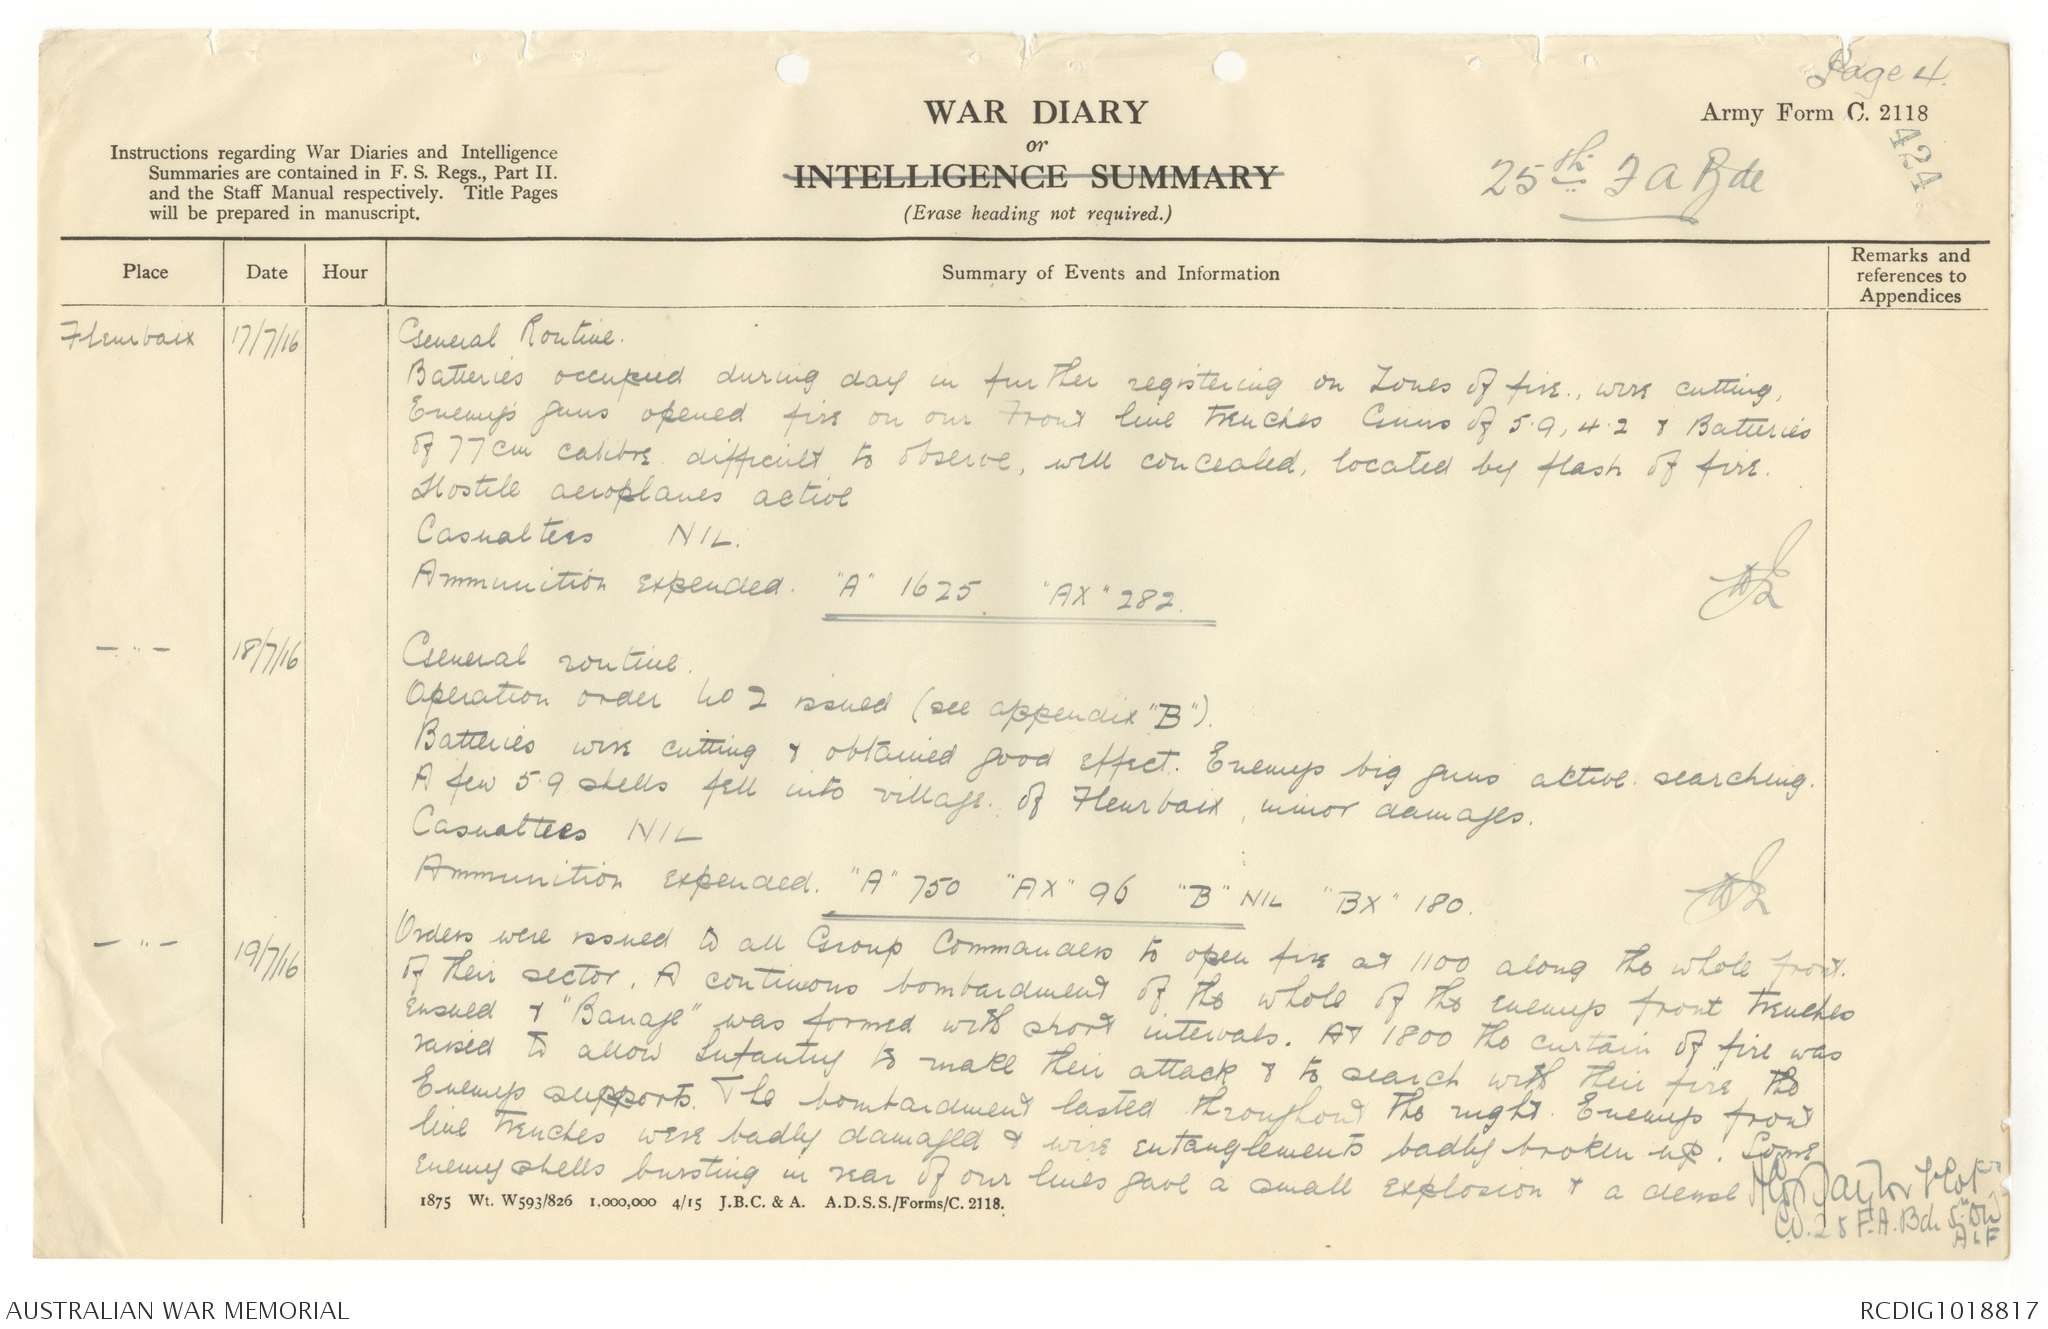 Page 4.
WAR DIARY
or
INTELLIGENCE SUMMARY
(Erase heading not required.)
Army Form C. 2118
424
25th F A Bde
Instructions regarding War Diaries and Intelligence
Summaries are contained in F. S. Regs., Part II.
and the Staff Manual respectively. Title Pages
will be prepared in manuscript.
Place
Date
Hour
Summary of Events and Information
Remarks and
references to
Appendices
Fleurbaix 17/7/16 General Routine.
Batteries occupied during day in further registering on Zones of fire., wire cutting,
Enemys guns opened fire on our Front line trenches Guns of 5.9, 4.2 & Batteries
of 77cm calibre difficult to observe, well concealed, located by flash of fire.
Hostile aeroplanes active
Casualties NIL.
Ammunition expended. "A" 1625. "AX" 282.
— " — 18/7/16 General routine.
Operation order No 2 issued (see appendix "B").
Batteries wire cutting & obtained good effect. Enemys big guns active searching.
A few 5.9 shells fell into village of Fleurbaix, minor damages.
Casualties NIL
Ammunition expended. "A" 750 "AX" 96 "B" NIL "BX" 180.
— " — 19/7/16 Orders were issued to all Group Commanders to open fire at 1100 along the whole front.
of their sector. A continuous bombardment of the whole of the enemys front trenches
ensued & "Barrage" was formed with short intervals. At 1800 the curtain of fire was
raised to allow Infantry to make their attack & to search with their fire the
Enemys supports. The bombardment lasted throughout the night. Enemys front
line trenches were badly damaged & wire entanglements badly broken up. Some
enemy shells bursting in rear of our lines gave a small explosion & a dense
Taylor
CO. 25 F.A. Bde 5th Div
AIF
1875 Wt. W593/826 1,000,000 4/15 J.B.C. & A. A.D.S.S./Forms/C. 2118.
AUSTRALIAN WAR MEMORIAL
RCDIG1018817